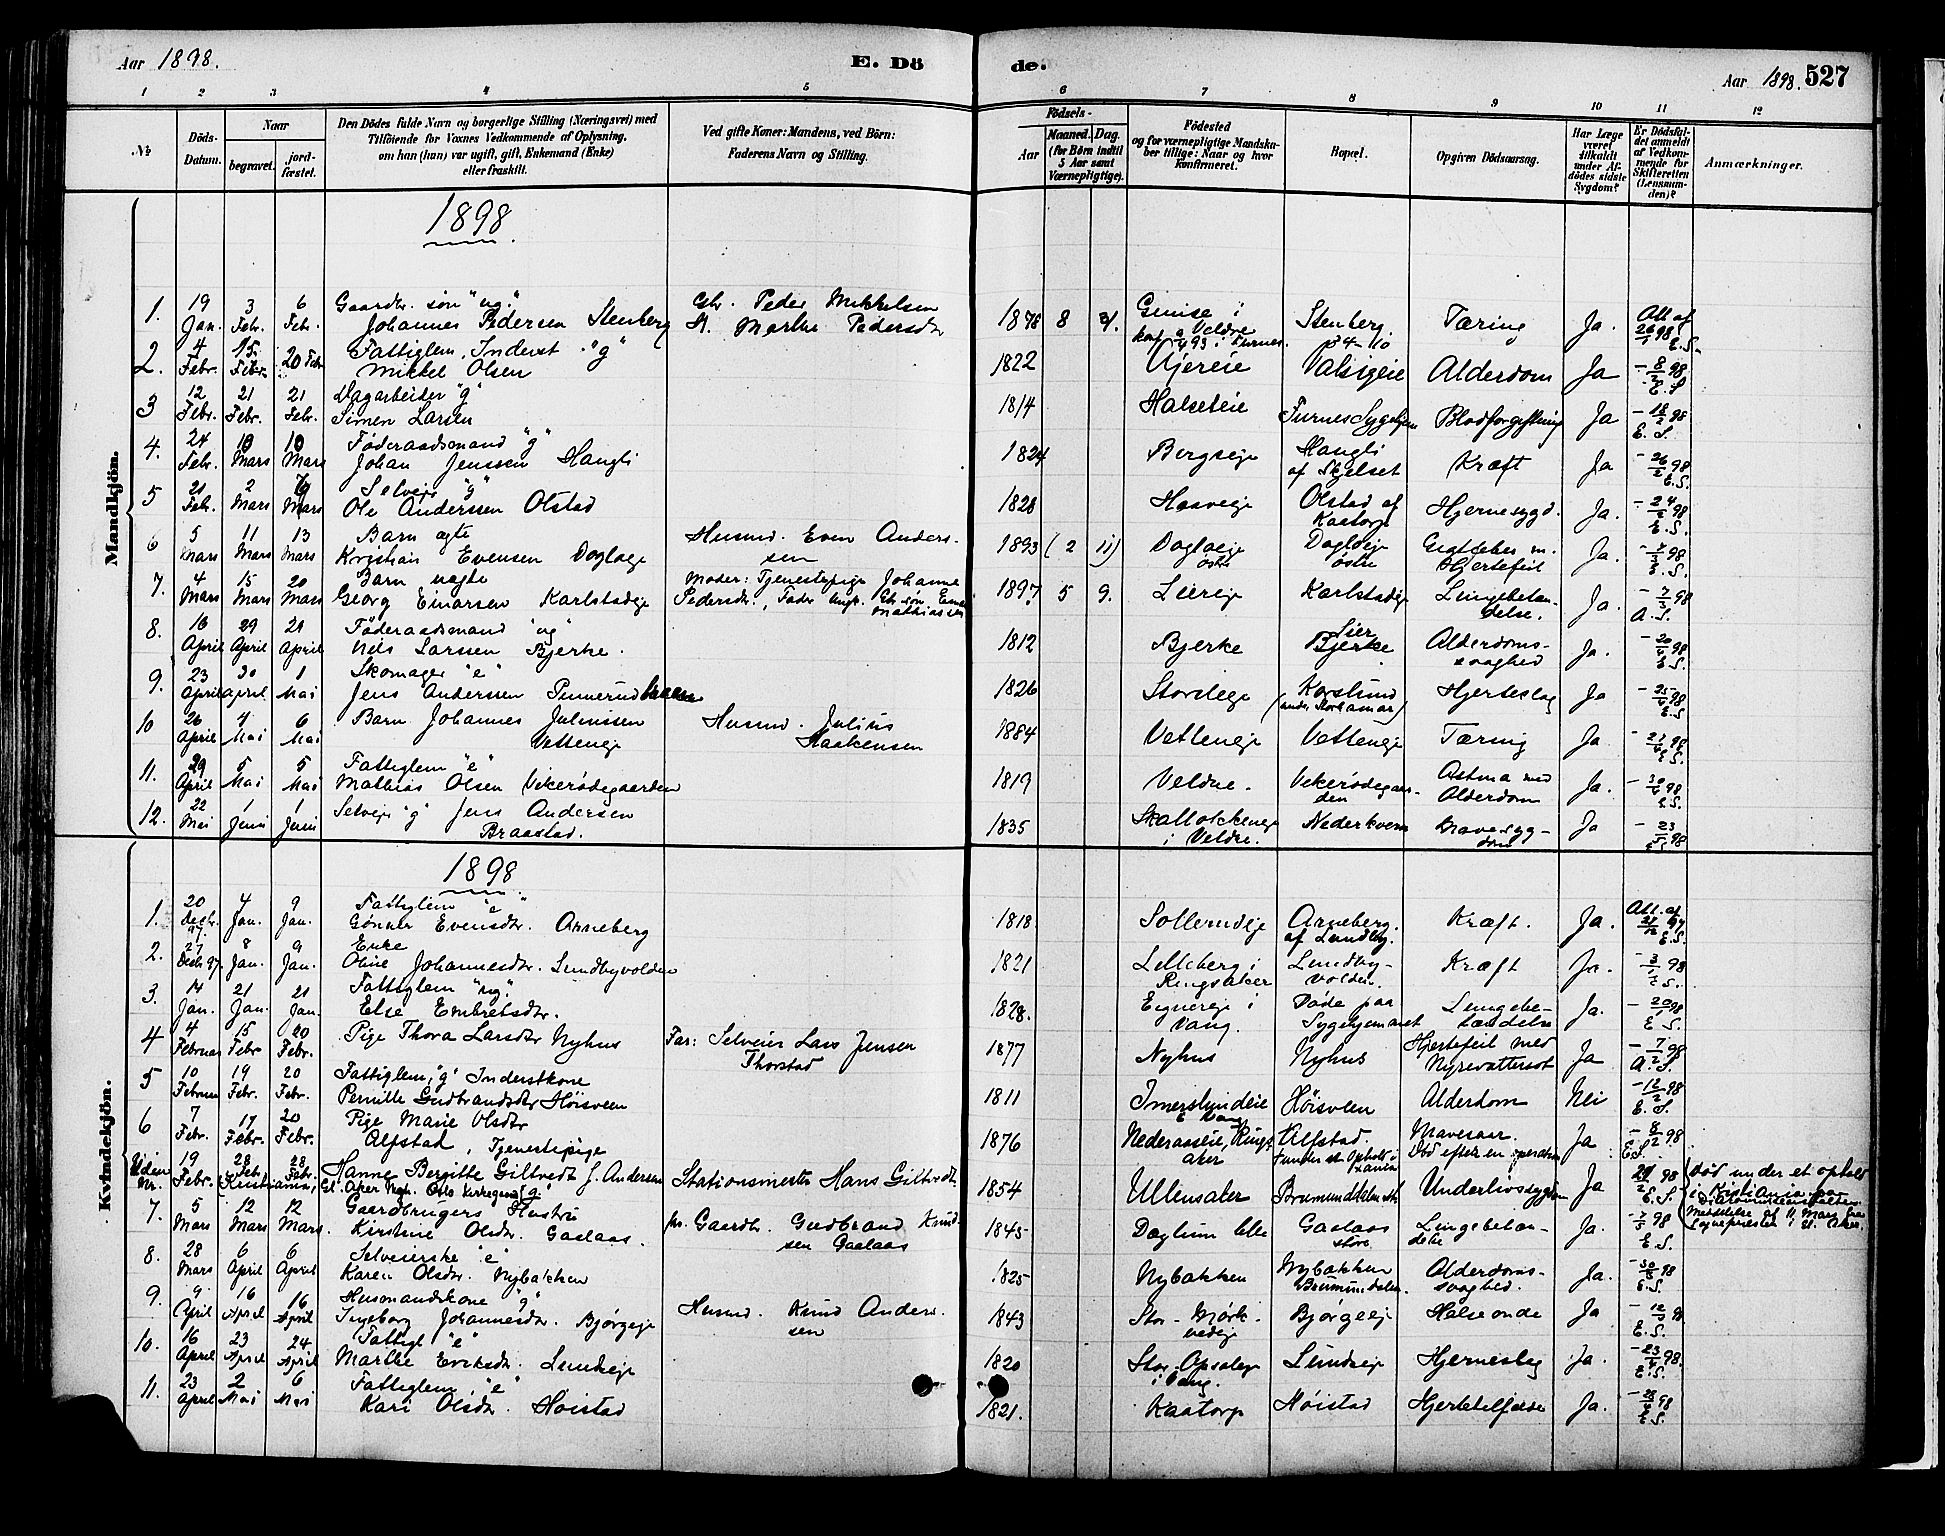 Aar 1898.
E. Dö
de.
Aar 1898. 527
1 2 3 4 5 6 7 8 9 10 11 12
№
Döds-Datum.
Naar
begravet.
jord-fæstet.
Den Dödes fulde Navn og borgerlige Stilling (Næringsvei) med
Tilföiende for Voxnes Vedkommende af Oplysning,
om han (hun) var ugift, gift, Enkemand (Enke)
eller fraskilt.
Ved gifte Koner: Mandens, ved Börn:
Faderens Navn og Stilling.
Födsels-
Aar
Maaned. Dag.
(for Börn indtil
5 Aar samt
Værnepligtige).
Födested
og for værnepligtige Mandska-
ber tillige: Naar og hvor
konfirmeret.
Bopæl.
Opgiven Dödsaarsag.
Har Læge
været
tilkaldt
under Af-
dödes sidste
Sygdom?
Er Dödsfal-
det anmeldt
af Vedkom-
mende for
Skifteretten
(Lensman-
den)?
Anmærkninger.
Mandkjön.
1898
1. 19 Jan. 3 Febr. 6 Febr. Gaardbr. søn "ug." Johannes Pedersen Stenberg Gbr. Peder Mikkelsen St. Marthe Pedersdtr 1878 8 Veldre konf. 93 i Furnes. Stenberg. Tæring Ja. Att. af 98 E.S.
2. 4 Febr. 15 Febr. 20 Febr Fattiglem. Inderst "g" Mikkel Olsen 1822 Valsigeie Alderdom Ja - 8/2 98 E.S
3 12 Febr. 21 Febr. 21 Febr. Dagarbeider "g" Simen Larsen 1814 Halseteie Furnes Sygehjem Blodforgiftning Ja - 18/2 98 E.S.
4. 24 Febr. 10 Mars 10 Mars Føderaadsmand "g" Johan Jenssen Haugli 1824 Bergseie Haugli af Skjelset Kræft Ja - 26/2 98 E.S.
5 21 Feb. 2 Mars Mars Selveier "g" Ole Anderssen Olstad 1828 Olstad af Kaatorp Hjernesygd. Ja. - 24/2 98 E.S.
6 5 Mars 11 Mars 13 Mars Barn ægte Kristian Evensen Dogloeje Husmd. Even Anders-sen 1893 (2 11) Dogloeje østre Dogloeje østre Hjertefeil Ja. 98 E.S.
7. 4 Mars 15 Mars 20 Mars Barn uægte Georg Einarsen Karlstadeje Moder: Tjenestepige Johanne Pedersdr., Fader Ungk. Gbr. søn Einar Mathiassen 1897 5 9. Leereje Karlstadeje Lungebetæn-delse. Ja. - 7/3 98 A.S.
8. 16 April 29 April 29 April Føderaadsmand "ug" Nils Larssen Bjerke. 1812 Bjerke Bjerke Alderdoms-svaghed Ja. - 20/4 98 E.S.
9. 23 April 30 April 1 Mai Skomager "e" Jens Anderssen Pinnerud 1826 Korslund (under Storhamar) Hjerteslag Ja - 25/4 98 E.S
10 26 April 4 Mai 6 Mai Barn Johannes Juliussen Vetteneje Husmd. Julius Haakensen 1884 Vetteneje Vetteneje Tæring Ja - 27/4 98 E.S.
11. 29 April 5 Mai 5 Mai Fattiglem "e" Mathias Olsen Vekerødegaarden 1819 Veldre. Vekerødegaar-den Astma med Alderdom Ja. - 30/4 98 E.S.
12. 22 Mai 1 Juni 1 Juni Selveje "g" Jens Andersen Braastad. 1835 i Veldre. Nederkvern Mavesyg-dom Ja - 23/5 98
Kvindekjön.
1898
1. 20 Decbr. 97. 4 Jan. 9 Jan. Fattiglem "e" Evensdtr. Arneberg 1818. Sollerudeje Arneberg. af Lundby. Kræft. Ja. Att. af E.S.
2. 27 Decb 97. 8 Jan. 9 Jan. Enke Oline Johannesdtr. Lundbyvolden 1821 Lilleberg i Ringsaker Lundby-volden. Kræft Ja. - 3/1 98 E.S.
3. 14 Jan. 21 Jan. 21 Jan. Fattiglem "ug." Else Embretsdtr. 1828. i Vang. Døde paa Sygehjemmet Lungebe-tændelse Ja. - 20/1 98 E.S.
4 4 Februar 15 Febr 20 Febr. Pige Thora Larsdtr Nyhus Far: Selveier Lars Jensen Thorstad 1877 Nyhus Nyhus Hjertefeil med Nyrevattersot Ja - 7/2 98 A.S.
5 10 Februar 19 Febr. 20 Febr. Fattiglem, "g" Inderstkone Pernille Gudbrandsdtr Høisveen 1811 Imerslundeie Høisveen Alderdom Nei - 12/2 98 E.S.
6 7 Febr. 17 Febr. 20 Febr. Pige Marie Olsdtr Alfstad, Tjenestepige 1876 Nederaaseie, Rings-aker Alfstad. under et Ophold i Mavesaar. Død efter en operation Ja - 8/2 98 E.S.
Uden Nr. 19 Febr. 28 Feb. 28 Febr. (Kristiania, Gl. Aker Hanne Bergitte Giltvedt f. Andersen "g" Stationsmester Hans Giltvedt 1854 Ullensaker Brumunddalen st. Underlivssygdom Ja 98 E.S. Død under et ophold i Kristiania
7. 5 Mars 12 Mars 12 Mars. Gaardbrugers Hustru Kirstine Olsdtr. Gaalaas. Gaardb. Gudbrand Knud-sen Gaalaas 1845 Daglum lille Gaalaas store Lungebetæn-delse Ja. - 7/3 98 E.S.
8. 28 Mars 6 April 6 April Selveierske "e" Karen Olsdtr. Nybakken 1825 Nybakken Nybakken Brumunddalen. Alderdoms-svaghed. Ja. - 30/3 98 E.S.
9. 9 April 16 April 16 April Husmandskone "g" Ingeborg Johannesdtr. Bjørgeje Husmd. Knud Anders-sen 1843 Stor-Mørk-vedeje Bjørgeej Halseonde Ja - 12/4 98 E.S.
10. 16 April 23 April 24 April Fattigl "e" Marthe Eriksdtr. Lundseje 1820 Stor-Opsaleje i Vang. Lundseje Hjerneslag Ja. - 23/4 98. E.S.
11. 23 April 2 Mai 6 Mai Fattiglem "e" Kari Olsdtr. Høistad 1821. Kaatorp Høistad Ja. 98 E.S.